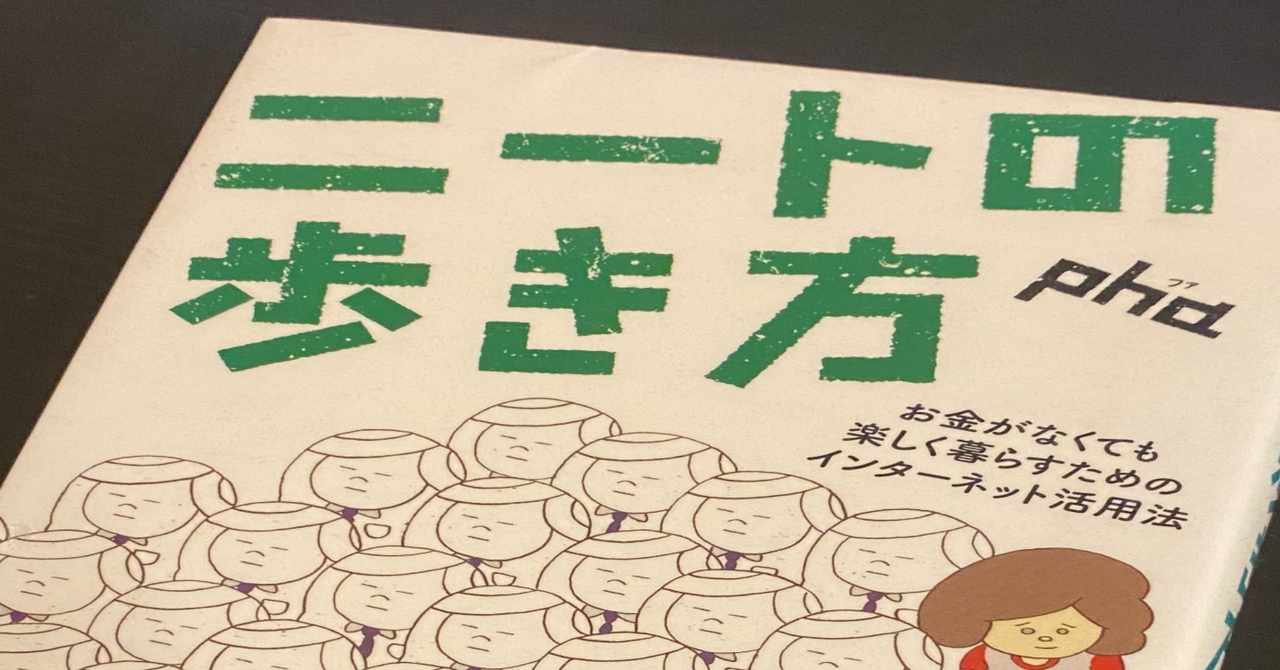 ニートの
歩き方
pha
ファ
お金がなくても
楽しく暮らすための
インターネット活用法